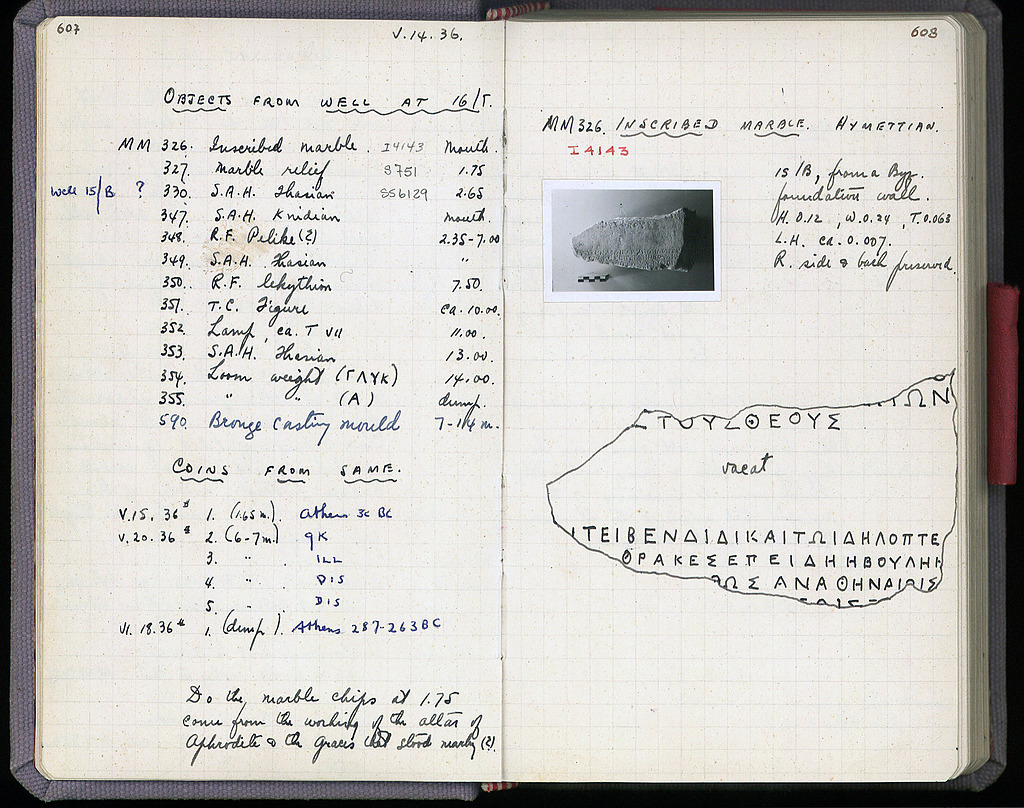 607
V.14.36.
OBJECTS FROM WELL AT 16/Γ.
MM 326. Inscribed marble. I4143 Mouth.
327. Marble relief S751 1.75
Well 15/B ? 330. S.A.H. Thasian SS6129 2.65
347. S.A.H. Knidian mouth.
348. R.F. Pelike (?) 2.35-7.00
349. S.A.H. Thasian "
350. R.F. lekythion 7.50.
351. T.C. Figure ca. 10.00.
352. Lamp, ca. T VII 11.00.
353. S.A.H. Thasian 13.00.
354. Loom weight (ΓΛΥΚ) 14.00.
355. " " (A) dump.
590. Bronze casting mould 7-14 m.
COINS FROM SAME.
V.15.36 1. (1.65 m.). Athens 3c BC
V.20.36 2. (6-7m.) 9K
3. " ILL
4. " DIS
5. " DIS
VI.18.36 1. (dump). Athens 287-263 BC
Do the marble chips at 1.75
come from the working of the altar of
Aphrodite & the Graces that stood nearby (?).
608
MM 326. INSCRIBED MARBLE. HYMETTIAN.
I 4143
15/B, from a Byz.
foundation wall.
H. 0.12, W. 0.24, T. 0.063
L.H. ca. 0.007.
R. side & back preserved.
ΙΩΝ
ΣΤΟΥΣΘΕΟΥΣ
vacat
ΙΤΕΙΒΕΝΔΙΔΙΚΑΙΤΩΙΔΗΛΟΠΤΕ
ΘΡΑΚΕΣΕΠΕΙΔΗΗΒΟΥΛΗΗ
ΩΣΑΝΑΘΗΝΑΙΟΙΣ